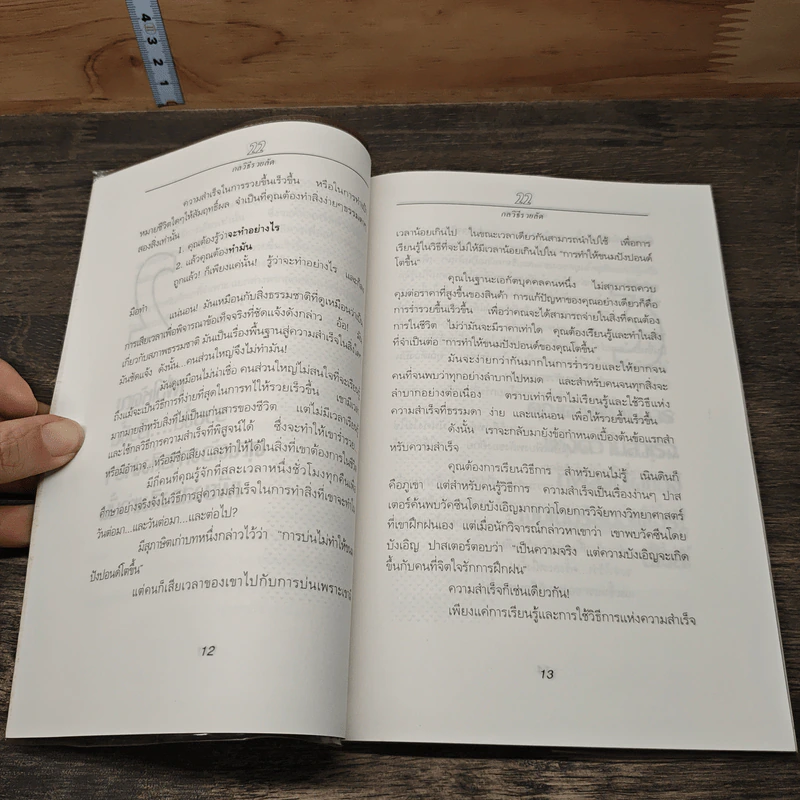 4
3
2
1
22
กลวิธีรวยลัด
ความสำเร็จในการรวยขึ้นเร็วขึ้น หรือในการทำให้
หมายชีวิตใดๆให้สัมฤทธิ์ผล จำเป็นที่คุณต้องทำสิ่งง่ายๆธรรมดาๆ
สองสิ่งเท่านั้น
1. คุณต้องรู้ว่าจะทำอย่างไร
2. แล้วคุณต้องทำมัน
ถูกแล้ว! ก็เพียงแค่นั้น! รู้ว่าจะทำอย่างไร และก็ลง
มือทำ
แน่นอน! มันเหมือนกับสิ่งธรรมชาติที่ดูเหมือนว่าเป็น
การเสียเวลาเพื่อพิจารณาข้อเท็จจริงที่ชัดแจ้งดังกล่าว ย้อ! มัน
เกี่ยวกับสภาพธรรมชาติ มันเป็นเรื่องพื้นฐานสู่ความสำเร็จในสิ่งใดๆ
มันชัดแจ้ง ดังนั้น...คนส่วนใหญ่จึงไม่ทำมัน!
มันดูเหมือนไม่น่าเชื่อ คนส่วนใหญ่ไม่สนใจที่จะเรียนรู้
ถึงแม้จะเป็นวิธีการที่ง่ายที่สุดในการทำให้รวยเร็วขึ้น เขามีเวลา
มากมายสำหรับสิ่งที่ไม่เป็นแก่นสารของชีวิต แต่ไม่มีเวลาเรียนรู้
และใช้กลวิธีการความสำเร็จที่พิสูจน์ได้ ซึ่งจะทำให้เขาร่ำรวย
หรือมีอำนาจ...หรือมีชื่อเสียง และทำให้ได้ในสิ่งที่เขาต้องการในชีวิต
มีกี่คนที่คุณรู้จักที่สละเวลาหนึ่งชั่วโมงทุกคืนเพื่อ
ศึกษาอย่างจริงจังในวิธีการสู่ความสำเร็จในการทำสิ่งที่เขาจะทำใน
วันต่อมา...และวันต่อมา...และต่อไป?
มีสุภาษิตเก่าบทหนึ่งกล่าวไว้ว่า “การบ่นไม่ทำให้ขนม
ปังปอนด์โตขึ้น”
แต่คนก็เสียเวลาของเขาไปกับการบ่นเพราะเขามี
12
22
กลวิธีรวยลัด
เวลาน้อยเกินไป ในขณะเวลาเดียวกันสามารถนำไปใช้ เพื่อการ
เรียนรู้ในวิธีที่จะไม่ให้มีเวลาน้อยเกินไปใน “การทำให้ขนมปังปอนด์
โตขึ้น”
คุณในฐานะเอกัตบุคคลคนหนึ่ง ไม่สามารถควบ
คุมต่อราคาที่สูงขึ้นของสินค้า การแก้ปัญหาของคุณอย่างเดียวก็คือ
การร่ำรวยขึ้นเร็วขึ้น เพื่อว่าคุณจะได้สามารถจ่ายในสิ่งที่คุณต้อง
การในชีวิต ไม่ว่ามันจะมีราคาเท่าใด คุณต้องเรียนรู้และทำในสิ่ง
ที่จำเป็นต่อ “การทำให้ขนมปังปอนด์ของคุณโตขึ้น”
มันจะง่ายกว่ากันมากในการร่ำรวย และให้ยากจน
คนที่จนพบว่าทุกอย่างลำบากไปหมด และสำหรับคนจนทุกสิ่งจะ
ลำบากอย่างต่อเนื่อง ตราบเท่าที่เขาไม่เรียนรู้และใช้วิธีแห่ง
ความสำเร็จที่ธรรมดา ง่าย และแน่นอน เพื่อให้รวยขึ้นเร็วขึ้น
ดังนั้น เราจะกลับมายังข้อกำหนดเบื้องต้นข้อแรกสำ
หรับความสำเร็จ
คุณต้องการเรียนวิธีการ สำหรับคนไม่รู้ เนินดินก็
คือภูเขา แต่สำหรับคนรู้วิธีการ ความสำเร็จเป็นเรื่องง่ายๆ ปาส
เตอร์ค้นพบวัคซีนโดยบังเอิญมากกว่าโดยการวิจัยทางวิทยาศาสตร์
ที่เขาฝึกฝนเอง แต่เมื่อนักวิจารณ์กล่าวหาเขาว่า เขาพบวัคซีนโดย
บังเอิญ ปาสเตอร์ตอบว่า “เป็นความจริง แต่ความบังเอิญจะเกิด
ขึ้นกับคนที่จิตใจรักการฝึกฝน”
ความสำเร็จก็เช่นเดียวกัน!
เพียงแค่การเรียนรู้และการใช้วิธีการแห่งความสำเร็จ
13